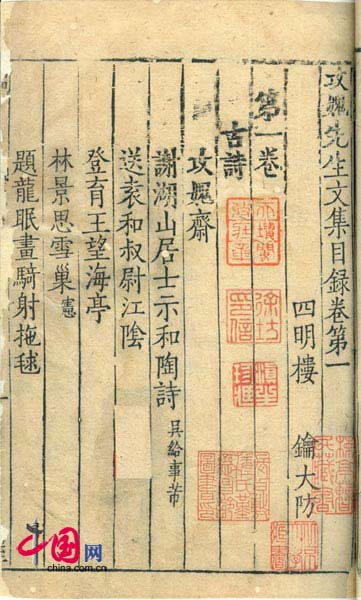 攻媿先生文集目錄卷第一
四明樓 鑰大防
第一卷
古詩
攻媿齋
謝湖山居士示和陶詩 吳給事芾
送袁和叔尉江陰
登育王望海亭
林景思雪巢 憲
題龍眠畫騎射抱毬
中国网
www.china.com.cn